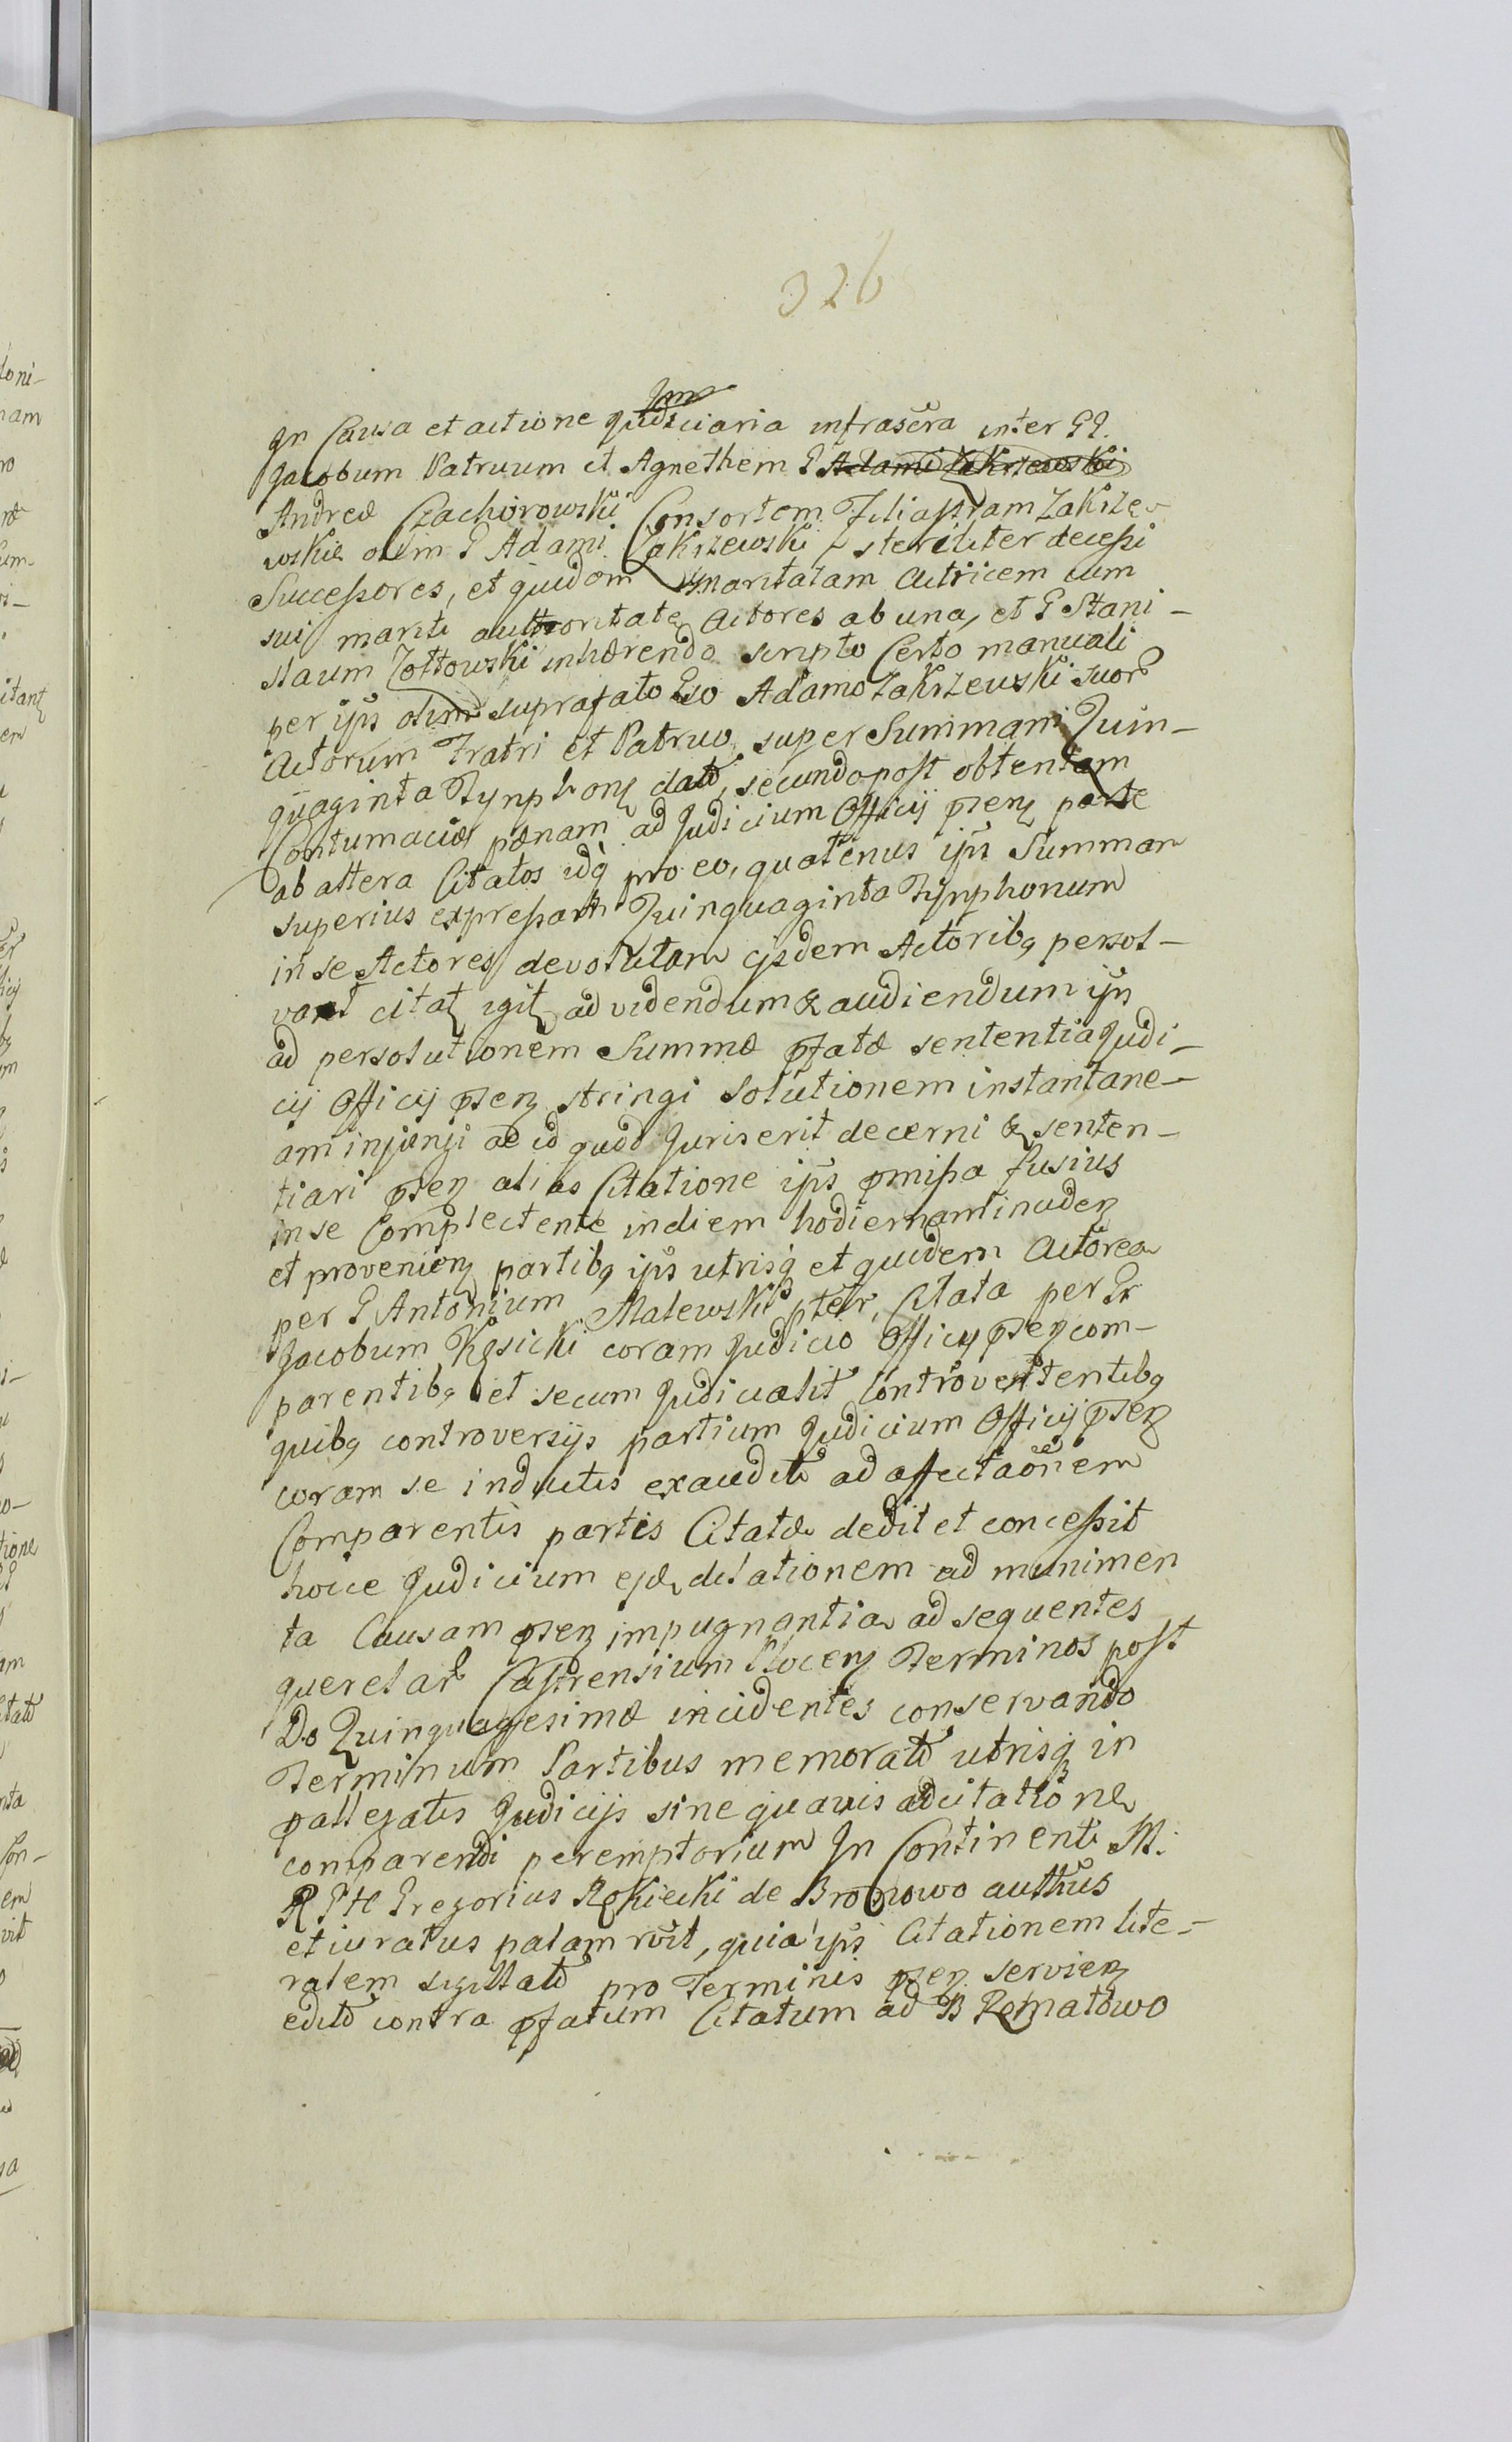 326
In Causa et actione Judiciaria infrascra inter GG.
Jacobum Patruum et Agnethem G Adami Zakrzewski
Andreæ Czachorowski Consortem Filiastram Zakrze-
wskie olim G Adami Zakrzewski steriliter decessi
Successores, et quidem maritatam Actricem cum
sui mariti authoritate Actores ab una, et G Stani-
slaum Zołtowski inhærendo scripto Certo manuali
per ips olim suprafato Gso Adamo Zakrzewski suor
Actorum Fratri et Patruo super Summam Quin-
quaginta Tynphon dato, secundo post obtentam
Contumaciæ pænam ad Judicium Officij psen parte
ab altera Citatos idq pro eo, quatenus ips Summam
superius expressam Quinquaginta Tynphonum
in se Actores devolutam ijsdem Actorib persol-
vant citat igit ad videndum & audiendum ips
ad persolutionem Summæ pfatæ sententia Judi-
cij Officij psen stringi solutionem instantane-
am injungi ac id quod Juris erit decerni & senten-
tiari psen alias Citatione ips pmissa fusius
in se Complectente in diem hodiernam inciden
et provenien partib ips utrisq et quidem Actorea
per G Antonium Malewski pter, Citata per Gr
Jacobum Kęsicki coram Judicio Officij psen com-
parentib et secum Judicialit Controvertentib
quib controversijs partium Judicium Officij psen
coram se inductis exauditis ad affectaõnem
Comparentis partis Citatæ dedit et concessit
hocce Judicium ejd dilationem ad munimen
ta Causam psen impugnantia ad sequentes
querelar Castrensium Plocen Terminos post
Do Quinquagesimæ incidentes conservando
Terminum Partibus memorat utrisq in
pallegatis Judicijs sine quavis adcitatione
comparendi peremptorium In Continenti M.
R P H Gregorius Rokicki de Bronowo authus
et iuratus palam rvit, quia ips Citationem lite-
ralem sigillat pro Terminis psen servien
edit contra pfatum Citatum ad B Rematowo